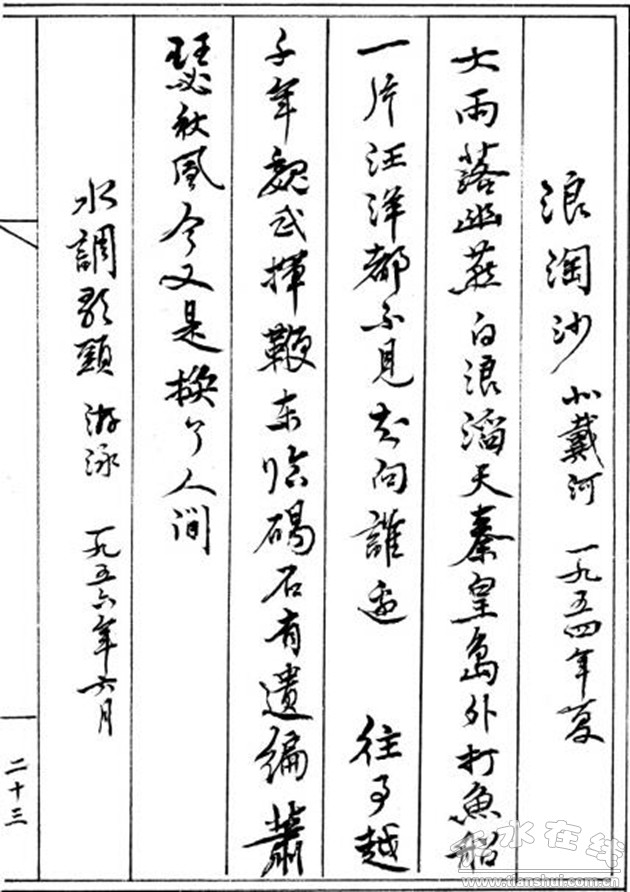 浪淘沙 北戴河 一九五四年夏
大雨落幽燕白浪滔天秦皇島外打魚船
一片汪洋都不見知向誰邊 往事越
千年魏武揮鞭东临碣石有遺编蕭
瑟秋風今又是换了人间
水調歌頭 游泳 一九五六年六月
二十三
天水在线
www.tianshui.com.cn